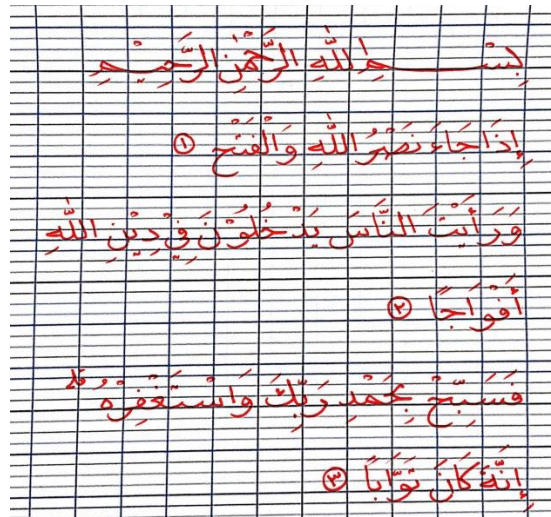 بِسْــــــمِ اللّٰهِ الرَّحْمٰنِ الرَّحِيْمِ
إِذَا جَاءَ نَصْرُ اللّٰهِ وَالْفَتْحُ ①
وَرَأَيْتَ النَّاسَ يَدْخُلُوْنَ فِيْ دِيْنِ اللّٰهِ
أَفْوَاجًا ②
فَسَبِّحْ بِحَمْدِ رَبِّكَ وَاسْتَغْفِرْهُ ۗ
إِنَّهُ كَانَ تَوَّابًا ③